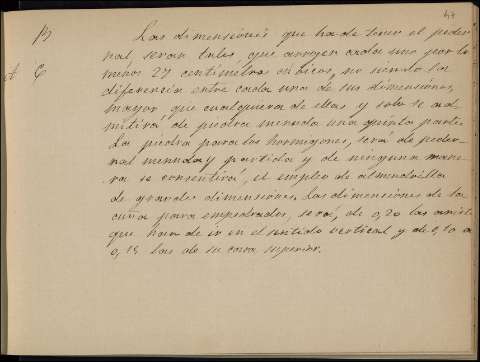 44
B Las dimensiones que ha de tener el peder-
nal, seran tales, que arrojen cada uno por lo
A C menos 27 centimetros cubicos, no siendo la
diferencia entre cada una de sus dimensiones,
mayor que cualquiera de ellas y solo se ad-
mitirá de piedra menuda una quinta parte.
La piedra para los hormigones, será de peder-
nal menuda y partida y de ninguna mane-
ra se consentirá, el empleo de almendrilla
de grandes dimensiones. Las dimensiones de la
cuña para empedrados, será, de 0,20 las aristas
que han de ir en el sentido vertical y de 0,10 a
0,15 las de su cara superior.